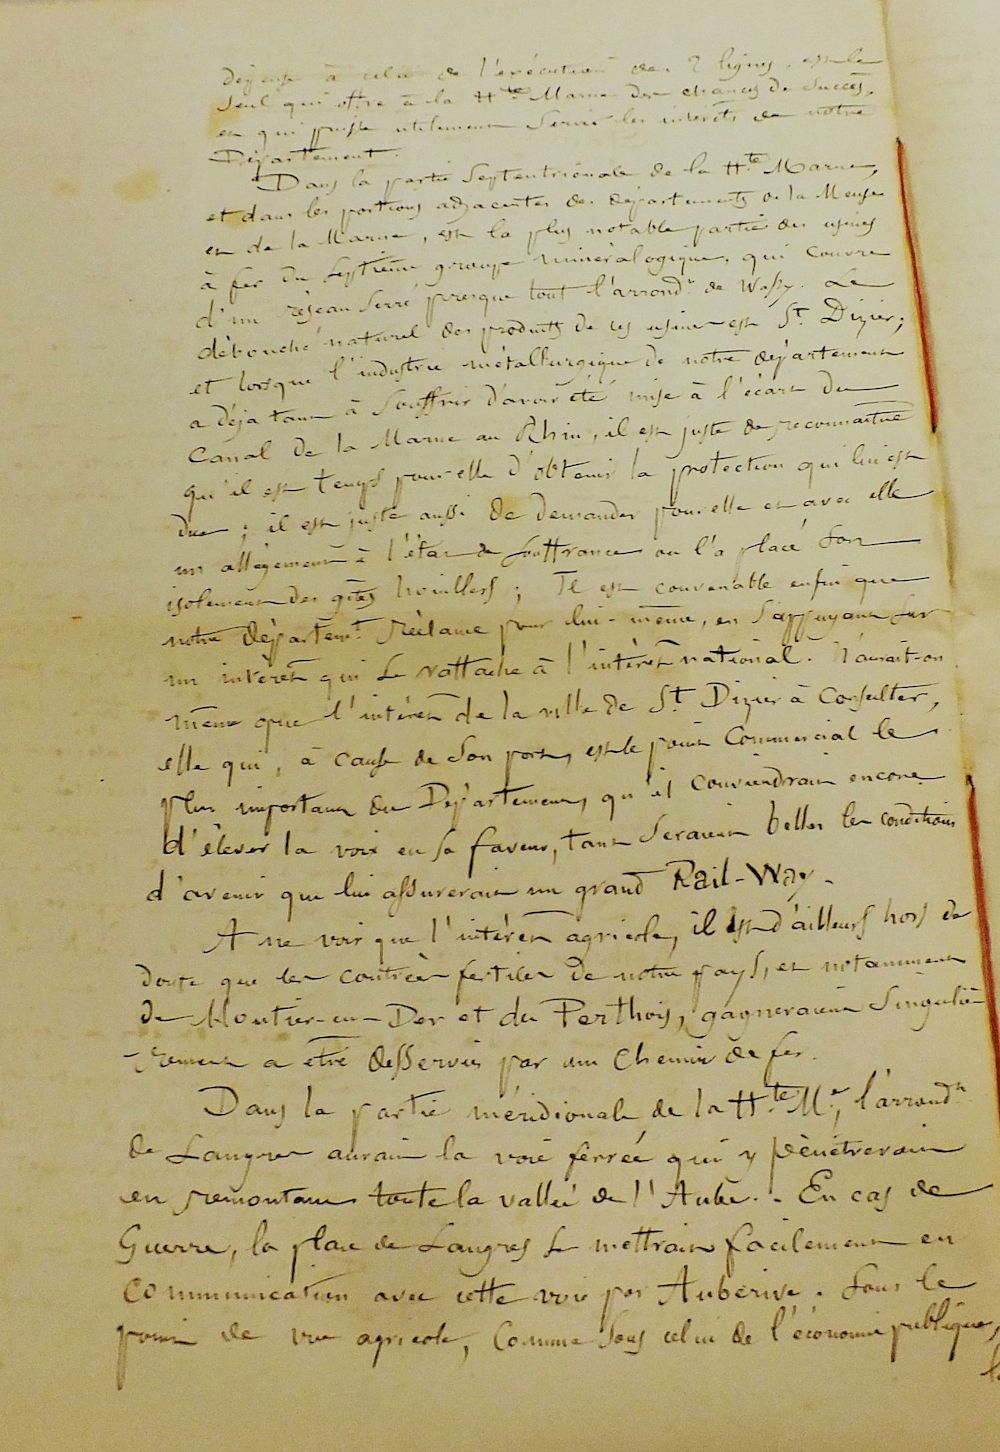 dépense à celle de l'exécution des 2 lignes, est le
seul qui offre à la Hte Marne des chances de succès,
et qui puisse utilement servir les intérêts de notre
Département.
Dans la partie Septentrionale de la Hte Marne,
et dans les portions adjacentes des départements de la Meuse
et de la Marne, est la plus notable partie des usines
à fer du septième groupe minéralogique, qui couvre
d'un réseau serré presque tout l'arrondt de Wassy. Le
débouché naturel des produits de ces usines est St Dizier;
et lorsque l'industrie métallurgique de notre département
a déja tant à souffrir d'avoir été mise à l'écart du
Canal de la Marne au Rhin, il est juste de reconnaitre
qu'il est temps pour elle d'obtenir la protection qui lui est
due; il est juste aussi de demander pour elle et avec elle
un allègement à l'état de souffrance ou l'a placé son
isolement des gîtes houillers; Il est convenable enfin que
notre départemt réclame pour lui-même, en s'appuyant sur
un intérêt qui se rattache à l'intérêt national. N'aurait-on
même que l'intérêt de la ville de St Dizier à consulter,
elle qui, à cause de son port, est le point Commercial le
plus important du Département, qu'il conviendrait encore
d'élever la voix en sa faveur, tant seraient belles les conditions
d'avenir que lui assurerait un grand Rail-Way.
A ne voir que l'intérêt agricole, il est d'ailleurs hors de
doute que les contrées fertiles de notre pays, et notamment
de Montier-en-Der et du Perthois, gagneraient singuliè-
-rement a être desservies par un Chemin de fer.
Dans la partie méridionale de la Hte Mne, l'arrondt
de Langres aurait la voie ferrée qui y pénétrerait
en remontant toute la vallée de l'Aube. - En cas de
Guerre, la place de Langres se mettrait facilement en
communication avec cette voie par Auberive. Sous le
point de vue agricole, comme sous celui de l'économie publique,